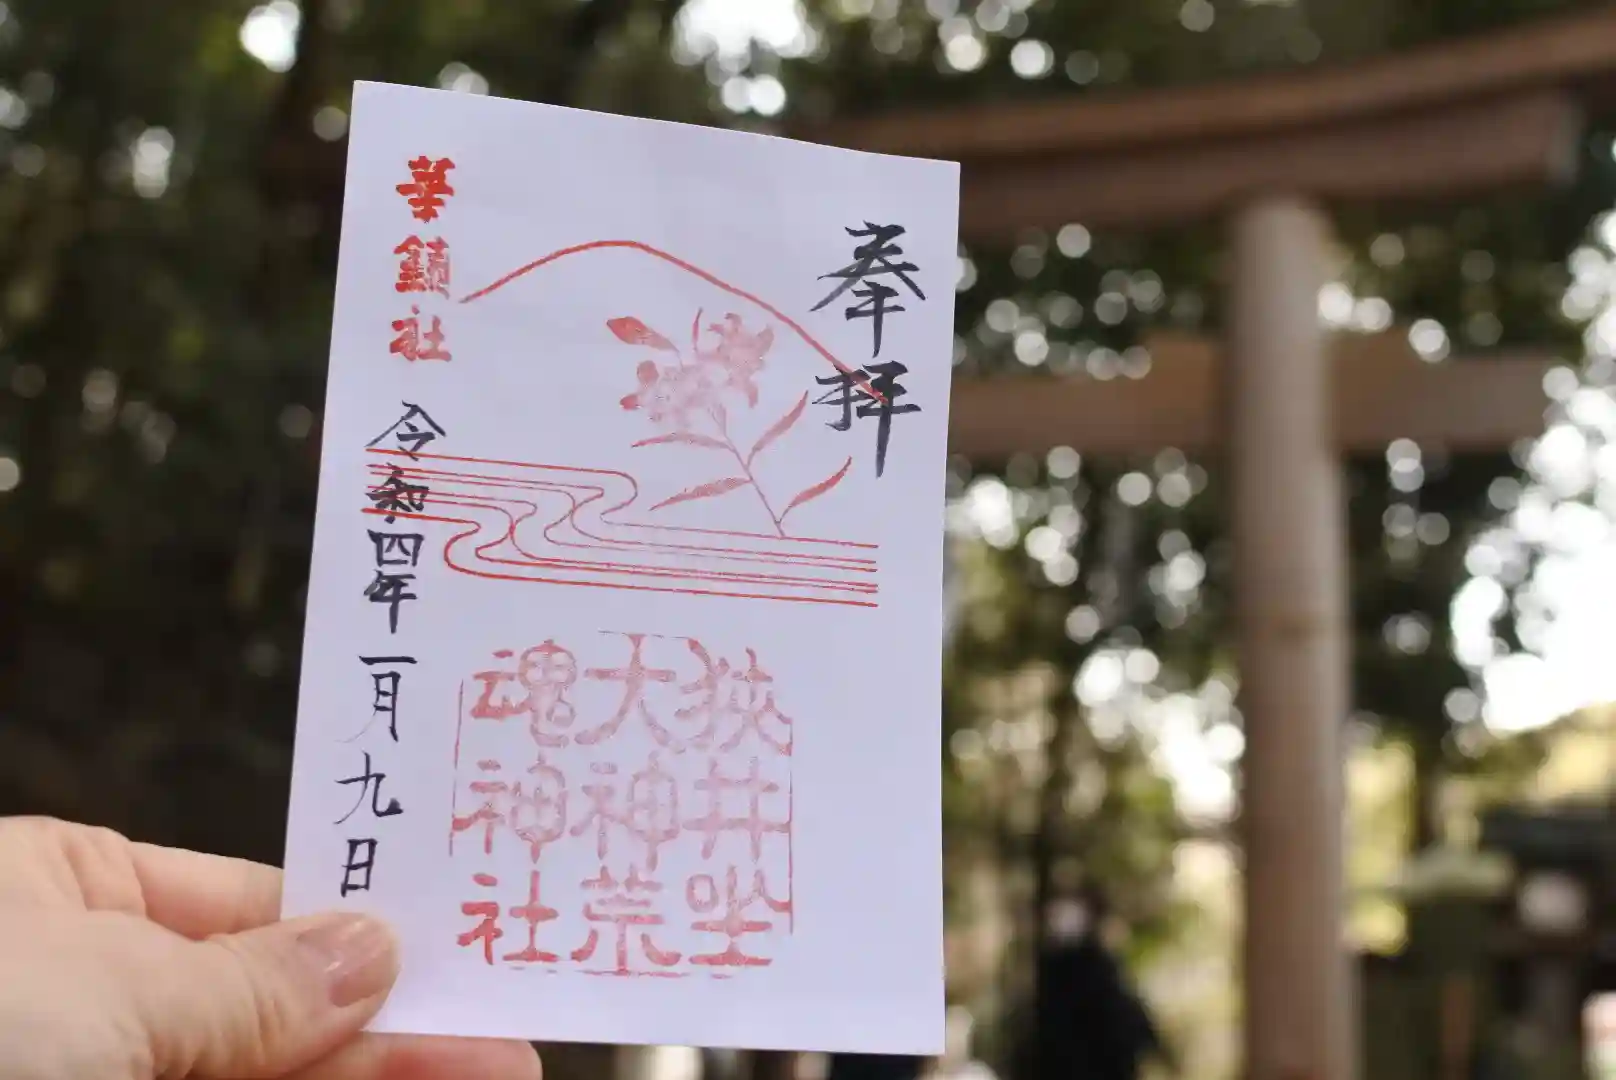 奉拝
狭井坐
大神荒
魂神社
華鎮社
令和四年一月九日